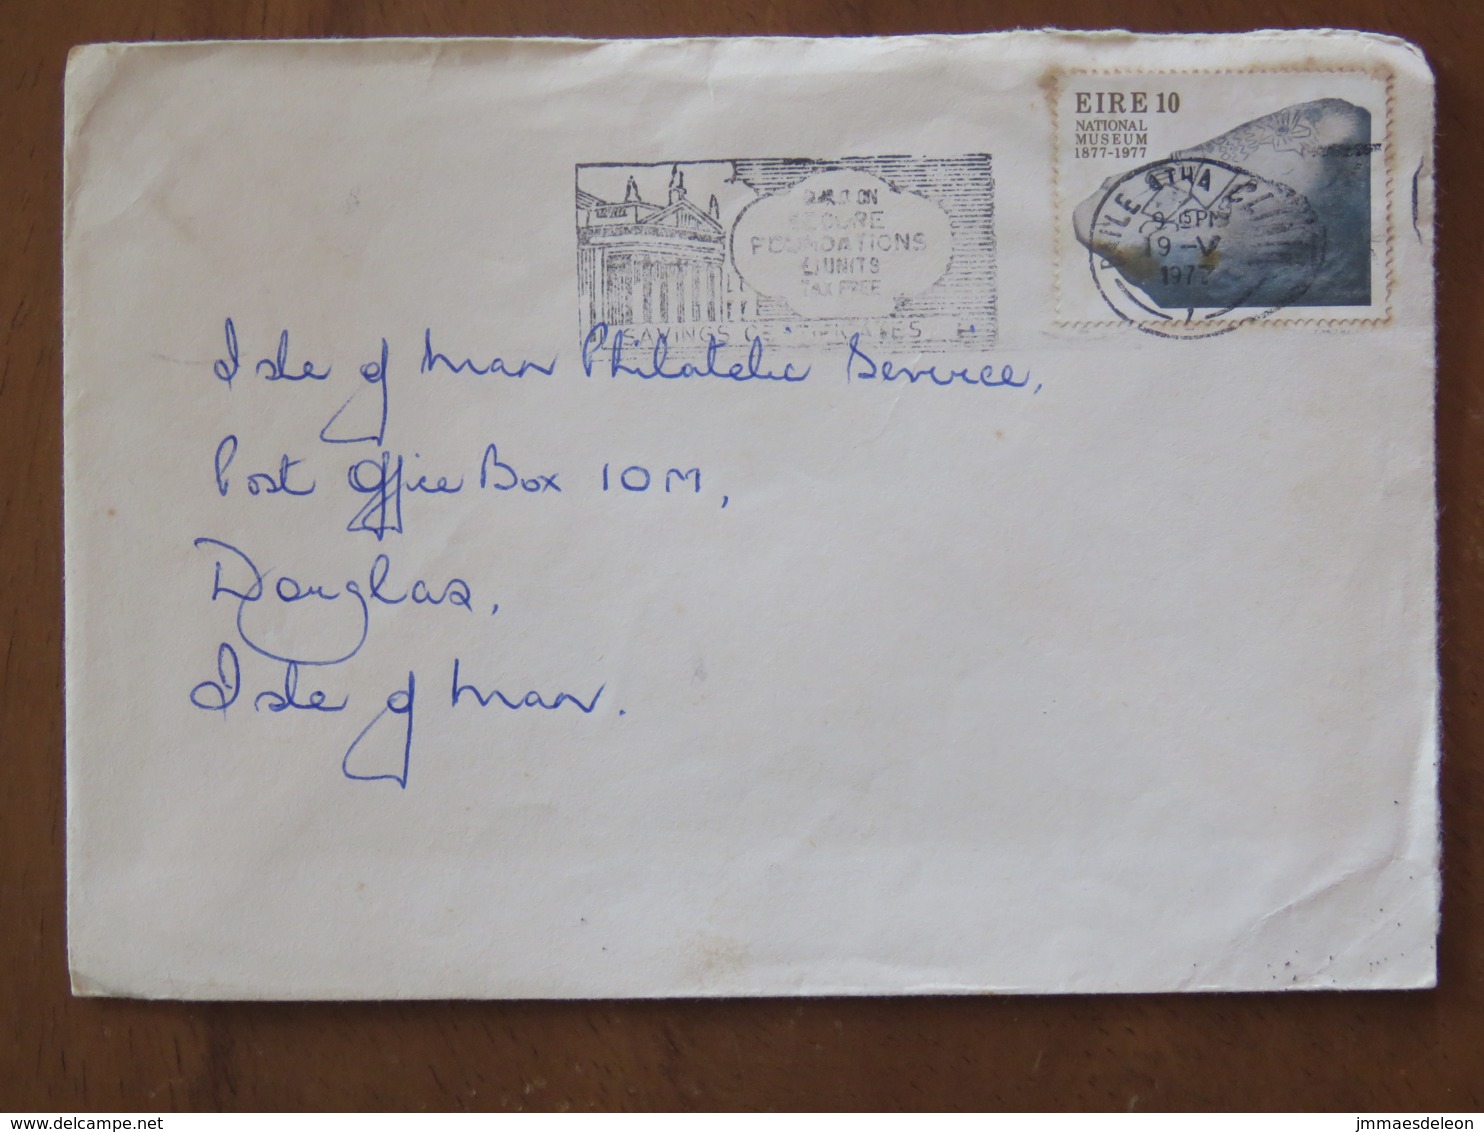 EIRE 10
NATIONAL
MUSEUM
1877-1977
BAILE ÁTHA CLIATH
9 15PM
19 -V
1977
BUILD ON
SECURE
FOUNDATIONS
£1 UNITS
TAX FREE
SAVINGS CERTIFICATES
Isle of Man Philatelic Service,
Post Office Box 10M,
Douglas,
Isle of Man.
delcampe.net
jmmaesdeleon